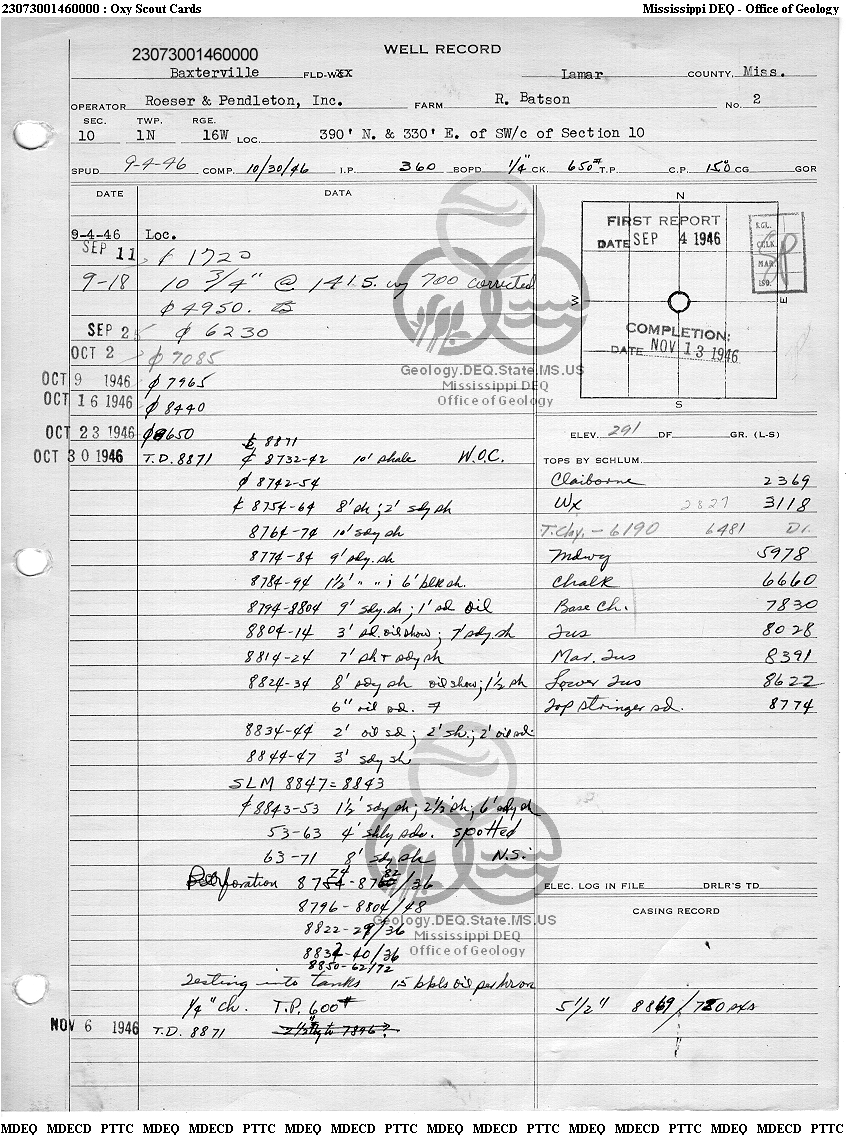 23073001460000 : Oxy Scout Cards Mississippi DEQ - Office of Geology
WELL RECORD
23073001460000
Baxterville FLD-W Lamar COUNTY, Miss.
OPERATOR Roeser & Pendleton, Inc. FARM R. Batson No. 2
SEC. TWP. RGE.
10 1N 16W LOC. 390' N. & 330' E. of SW/c of Section 10
SPUD 9-4-46 COMP. 10/30/46 I.P. 360 BOPD 1/4" CK. 650# T.P. C.P. 150 CG GOR
DATE DATA
9-4-46 Loc.
SEP 11 1720
9-18 10 3/4" @ 1415. w/ 700 corrected
¢ 4950.
SEP 25 ¢ 6230
OCT 2 ¢ 7085
OCT 9 1946 ¢ 7965
OCT 16 1946 ¢ 8440
OCT 23 1946 ¢ 8650
¢ 8871
OCT 30 1946 T.D. 8871 ¢ 8732-42 10' shale W.O.C.
¢ 8742-54
¢ 8754-64 8' sh; 2' sdy sh
8764-74 10' sdy sh
8774-84 9' sdy. sh
8784-94 1½' " "; 6' blk sh.
8794-8804 9' sdy. sh; 1' sd oil
8804-14 3' sd. oil show; 7' sdy sh
8814-24 7' sh + sdy sh
8824-34 8' sdy sh oil show; 1½ sh
6" oil sd.
8834-44 2' oil sd; 2' sh.; 2' oil sd.
8844-47 3' sdy sh
SLM 8847 = 8843
¢ 8843-53 1½' sdy sh; 2½' sh; 6' sdy sh
53-63 4' shly sdw. spotted
63-71 8' sdy sh N.S.
Perforation 8774-8782/36
8796-8804/48
8822-28/36
8834-40/36
8850-62/72
Testing into tanks 15 bbls oil per hr on
1/4" ch. T.P. 600#
NOV 6 1946 T.D. 8871 2½" 7846?
N
W
E
S
FIRST REPORT
DATE SEP 4 1946
SGL.
CHK.
MAR.
ISO.
COMPLETION:
DATE NOV 13 1946
Geology.DEQ.State.MS.US
Mississippi DEQ
Office of Geology
ELEV. 291 DF GR. (L-S)
TOPS BY SCHLUM.
Claiborne 2369
Wx 2827 3118
T. Clay. - 6190 6481 Dr.
Mdwy 5978
Chalk 6660
Base Ch. 7830
Tus 8028
Mar. Tus 8391
Lower Tus 8622
Top Stringer sd. 8774
Geology.DEQ.State.MS.US
Mississippi DEQ
Office of Geology
ELEC. LOG IN FILE DRLR'S TD
CASING RECORD
5 1/2" 8869/780 sxs
MDEQ MDECD PTTC MDEQ MDECD PTTC MDEQ MDECD PTTC MDEQ MDECD PTTC MDEQ MDECD PTTC MDEQ MDECD PTTC